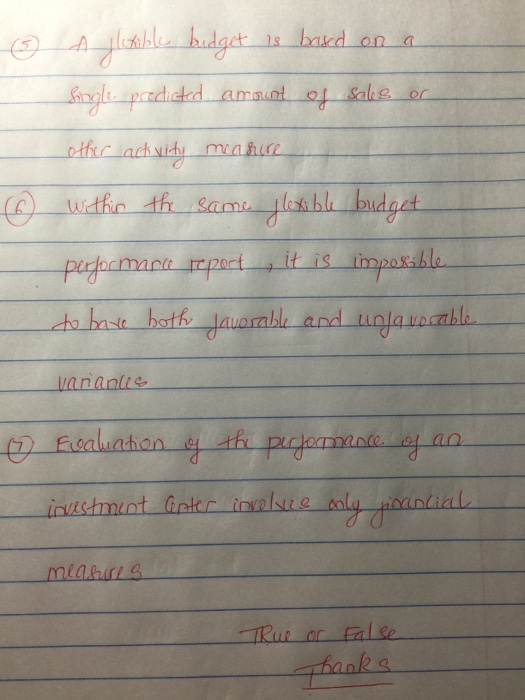 (5) A flexible budget is based on a
single predicted amount of sales or
other activity measure
(6) Within the same flexible budget
performance report, it is impossible
to have both favorable and unfavorable
variances
(7) Evaluation of the performance of an
investment Center involves only financial
measures
TRue or False
Thanks